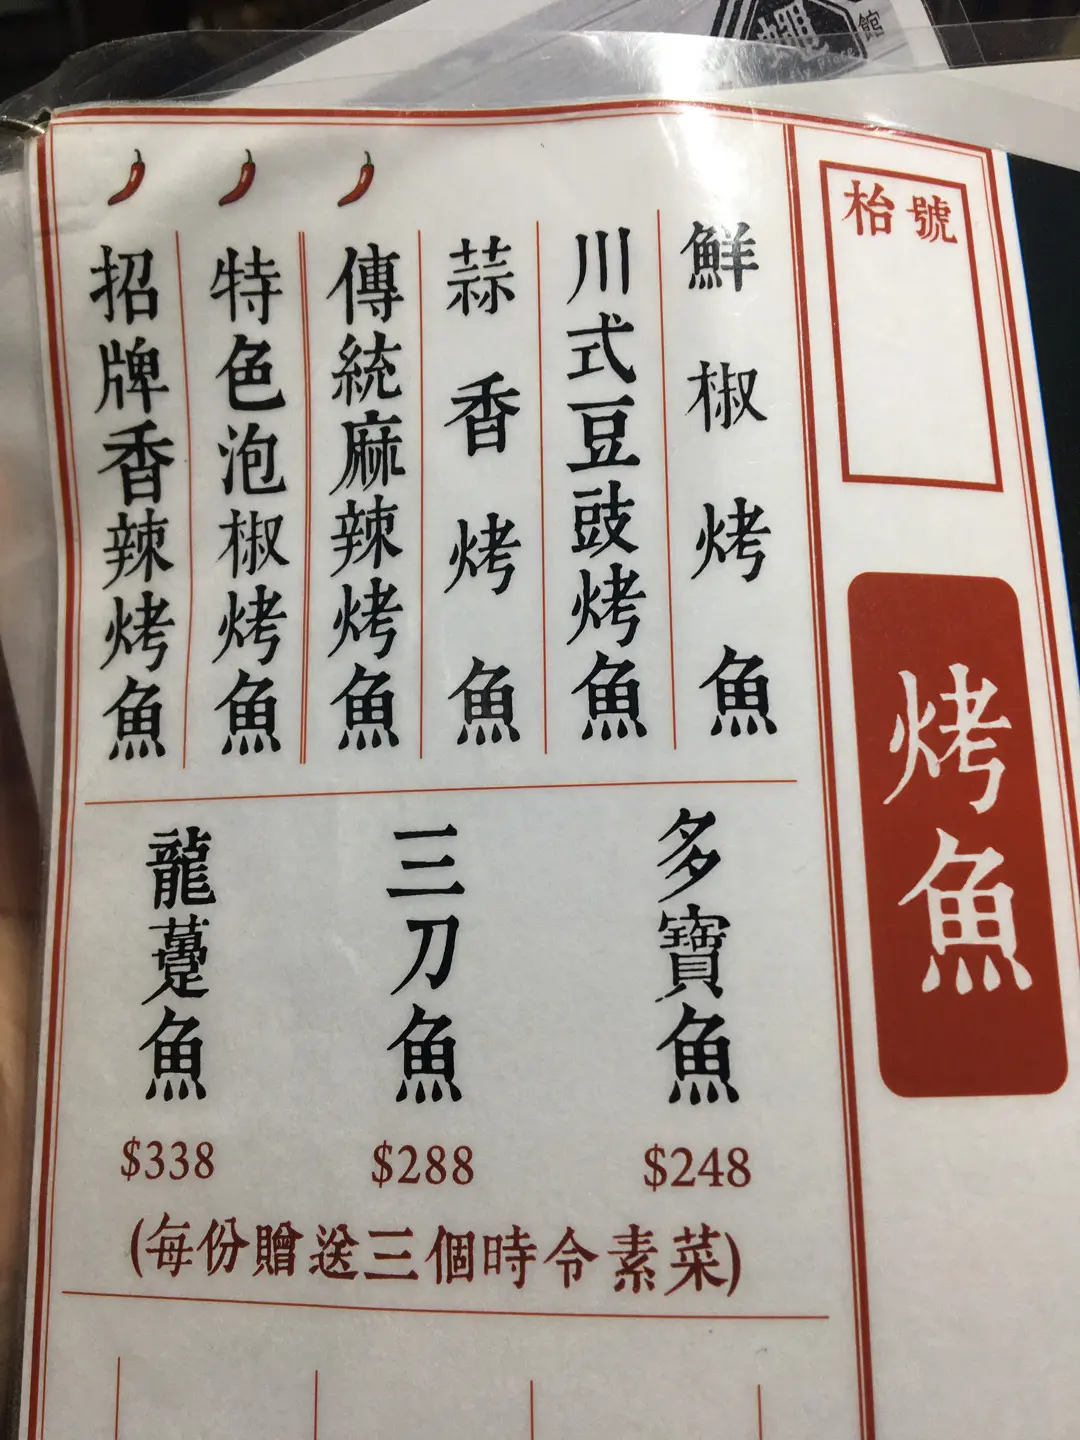 館
枱號
烤魚
鮮椒烤魚
川式豆豉烤魚
蒜香烤魚
傳統麻辣烤魚
特色泡椒烤魚
招牌香辣烤魚
多寶魚
$248
三刀魚
$288
龍躉魚
$338
(每份贈送三個時令素菜)